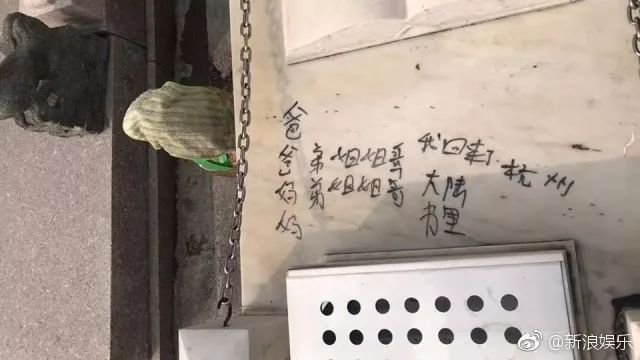 爸爸妈妈
弟弟
姐姐
姐姐
哥哥
我回来了
大陆
杭州
书里
@新浪娱乐